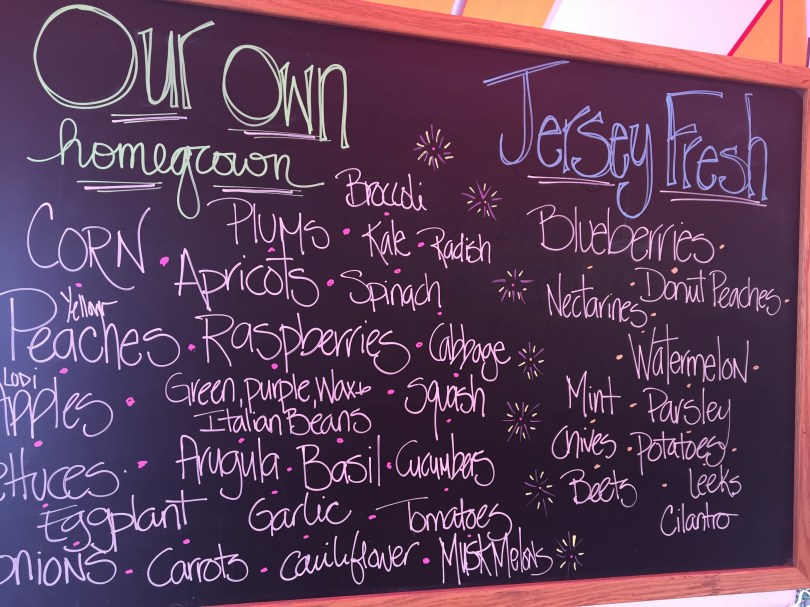 Our Own
homegrown
Broccoli
CORN · Plums · Kale · Radish
Apricots · Spinach
Yellow
Peaches · Raspberries · Cabbage
LODI
Apples · Green, purple, Wax & · Squash
Italian Beans
ettuces · Arugula · Basil · Cucumbers
Eggplant Garlic · Tomatoes
onions · Carrots · cauliflower · MuskMelons
Jersey Fresh
Blueberries ·
Nectarines · Donut Peaches ·
Watermelon ·
Mint · Parsley
Chives · Potatoes ·
Beets · Leeks
Cilantro